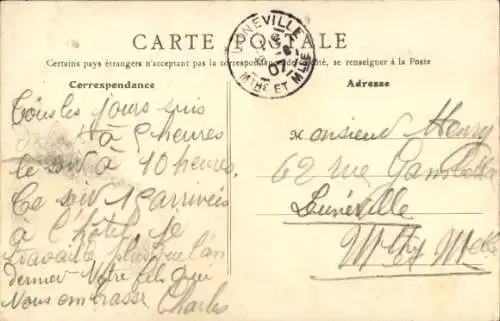 CARTE POSTALE
Certains pays étrangers n'acceptant pas la correspondance de ce côté, se renseigner à la Poste
LUNEVILLE
07
MTHE ET MLLE
Correspondance
Tous les jours suis
à 5 heures
le soir à 10 heures.
Ce soir 15 arrivées
à l'hôtel je
travaille plus que l'an
dernier Votre fils qui
Vous embrasse Charles
Adresse
Monsieur Henry
62 rue Gambetta
Lunéville
Mthe Mlle